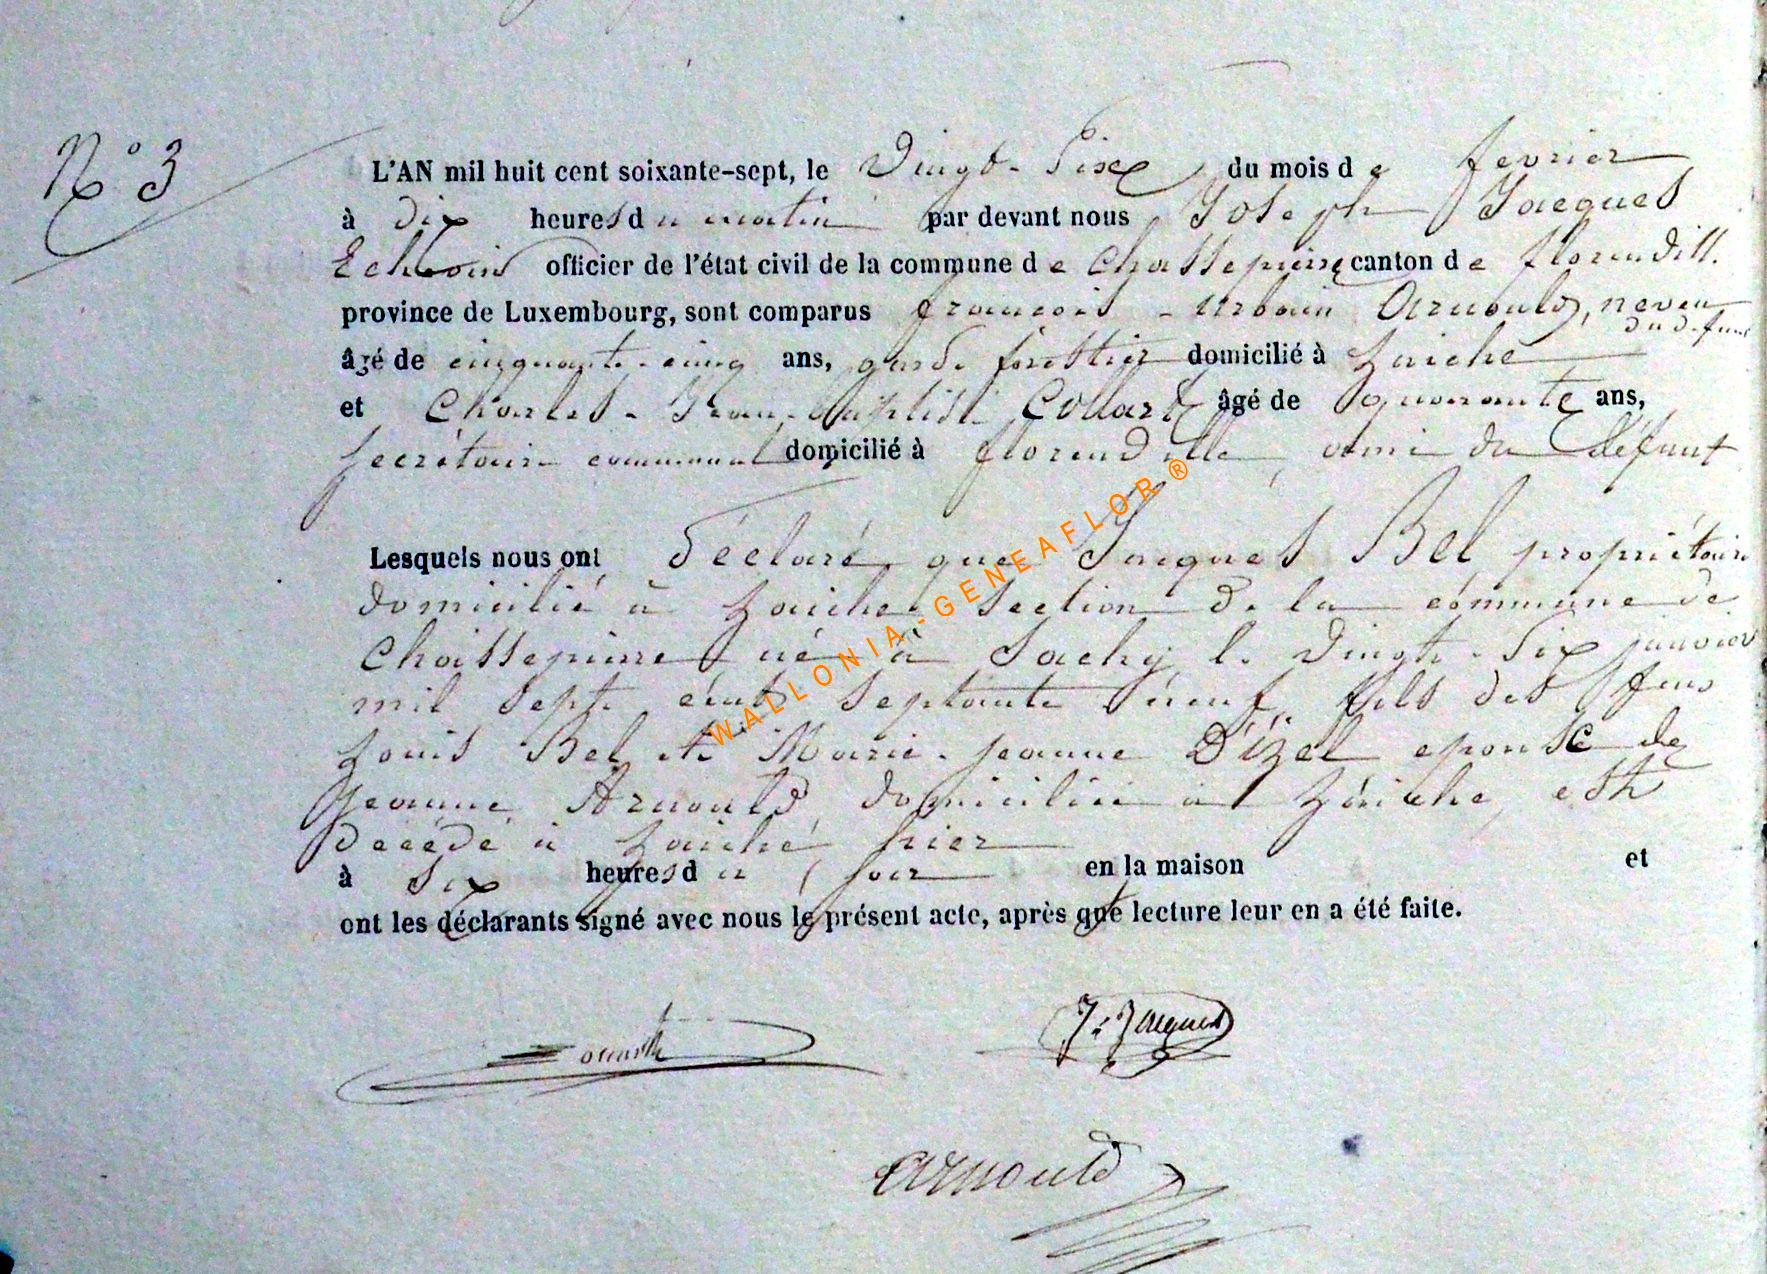 N° 3
L'AN mil huit cent soixante-sept, le Vingt-Six du mois de fevrier
à dix heures du matin par devant nous Joseph Jacques
Echevin officier de l'état civil de la commune de Chassepierre canton de florendill.
province de Luxembourg, sont comparus françois - urbain Arnould, neveu
du defunt
âgé de cinquante-cinq ans, garde forestier domicilié à Laiche
et Charles-Jean-Baptiste Collard âgé de quarante ans,
secrétaire communal, domicilié à florendville, ami du défunt
Lesquels nous ont déclaré que Jacques Bel propriétaire
domicilié à Laiche section de la commune de
Chassepierre né à Sachy le vingt-six janvier
mil sept cent septante neuf, fils des feus
Louis Bel et Marie-jeanne Dizel epouse de
Jeanne Arnould domiciliée à Laiche, est
decédé à Laiche hier
à six heures du soir en la maison et
ont les déclarants signé avec nous le présent acte, après que lecture leur en a été faite.
J. Jacques
Arnould
WALLONIA-GENEAFLOR ®